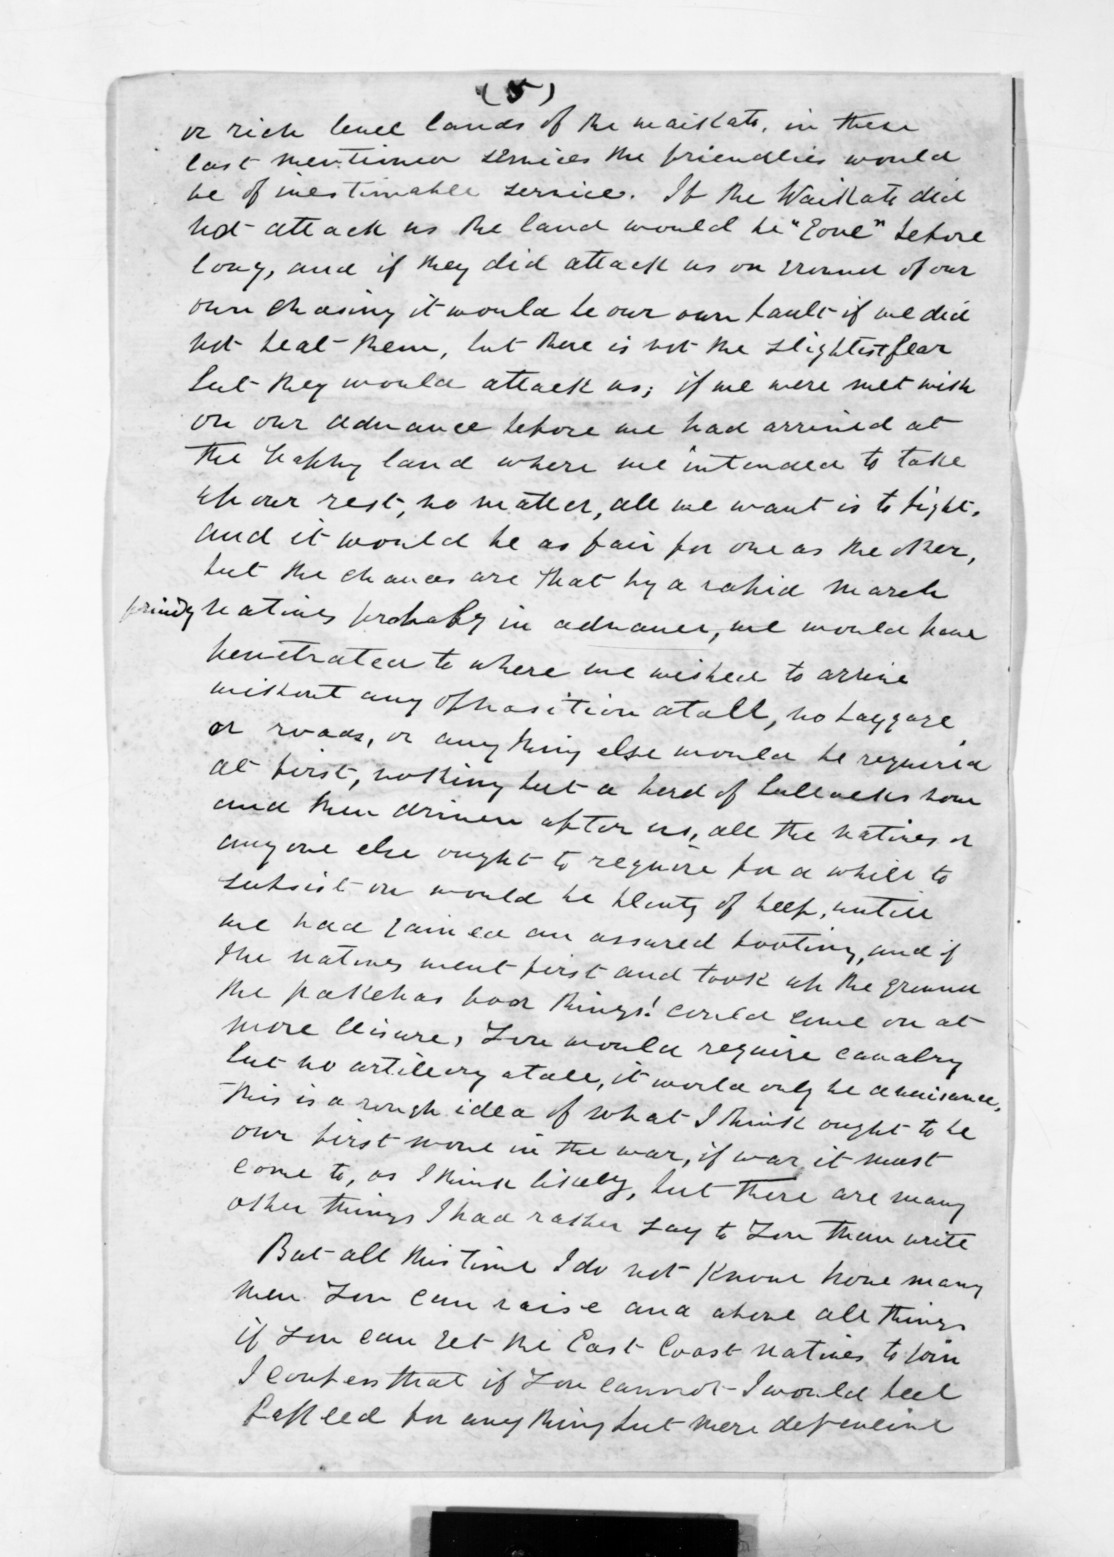 (5)
or rich level lands of the Waikato, in these
last mentioned services the friendlies would
be of inestimable service. If the Waikato did
not attack us the land would be "gone" before
long, and if they did attack us on ground of our
own chosing it would be our own fault if we did
not beat them, but there is not the slightest fear
but they would attack us; if we were met with
on our advance before we had arrived at
the happy land where we intended to take
up our rest, no matter, all we want is to fight,
and it would be as fair for one as the other,
but the chances are that by a rapid march
friendly natives probably in advance, we would have
penetrated to where we wished to arrive
without any opposition atall, no baggage,
or roads, or any thing else would be required
at first, nothing but a herd of bullocks now
and then driven after us, all the natives or
anyone else ought to require for a while to
subsist on would be plenty of beef, untill
we had gained an assured footing, and if
the natives went first and took up the ground
the pakehas poor things! could come on at
more leisure, You would require cavalry
but no artillery atall, it would only be a nuisance,
this is a rough idea of what I think ought to be
our first move in the war, if war it must
come to, as I think likely, but there are many
other things I had rather say to You than write
But all this time I do not know how many
men You can raise and above all things
if You can get the East Coast natives to join
I confess that if You cannot I would feel
baffled for any thing but mere defensive